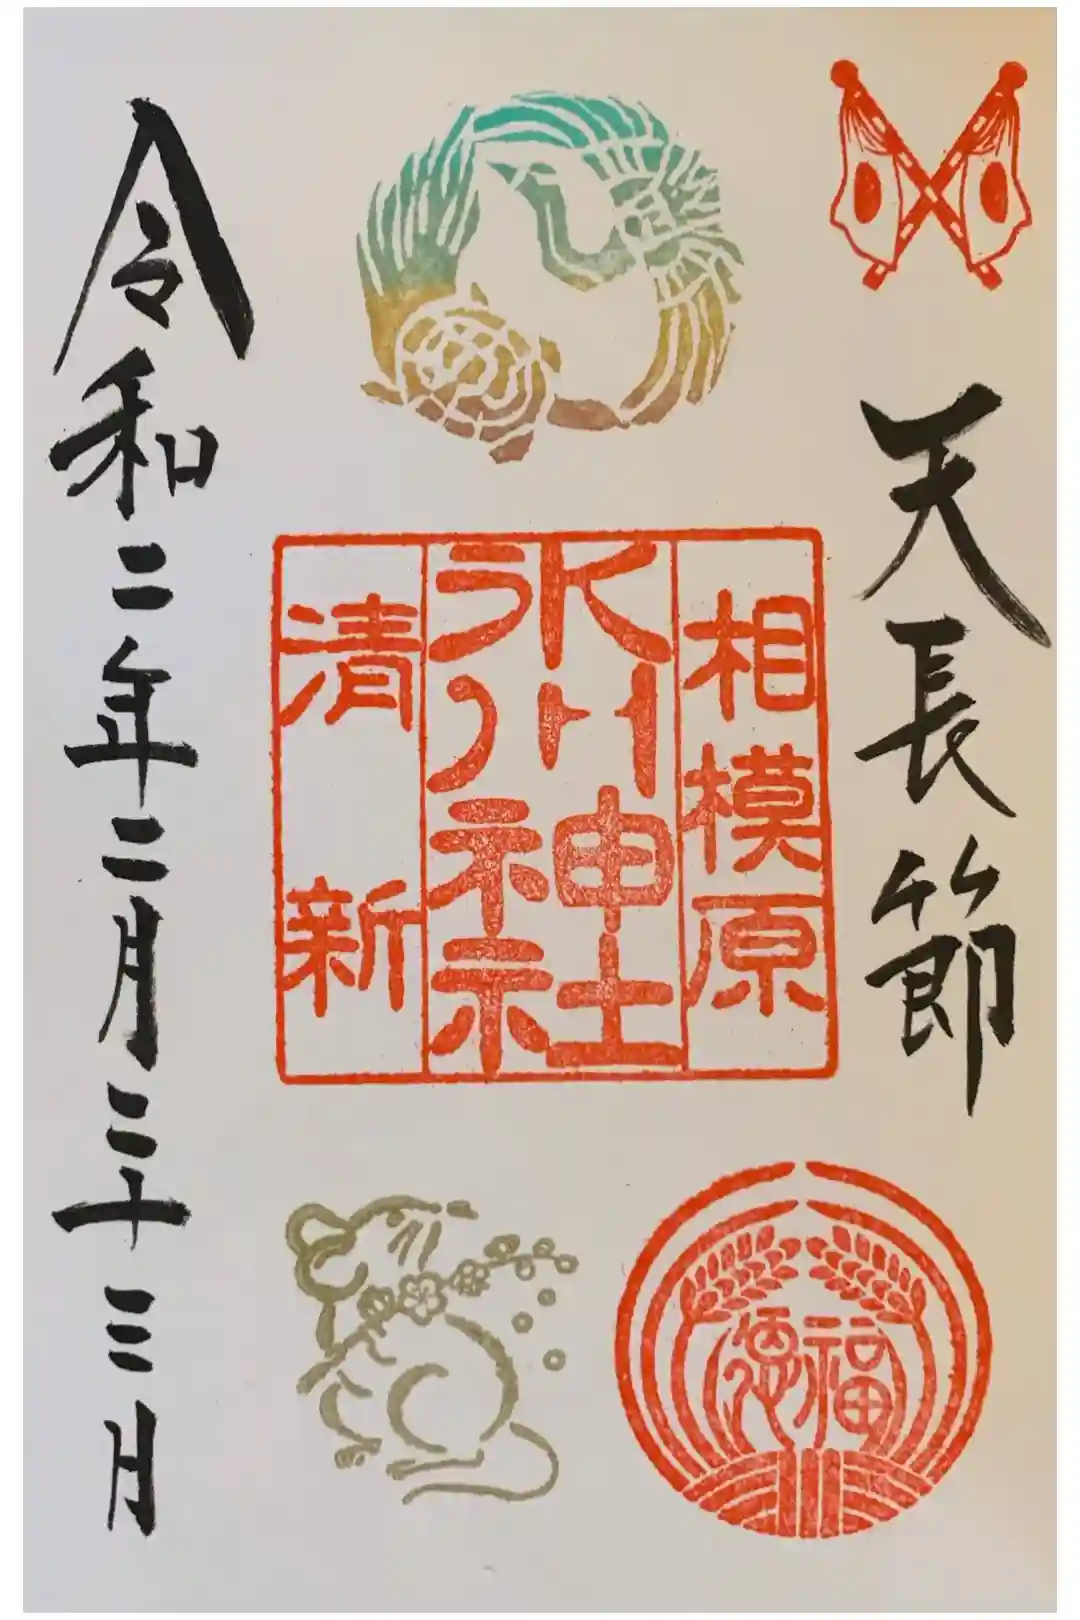 天長節
相模原
氷川神社
清新
令和二年二月二十三日
福徳